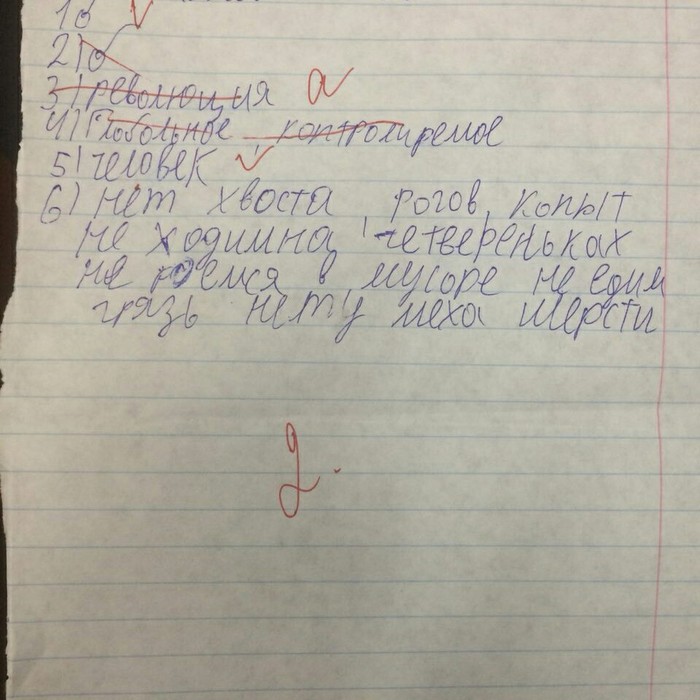 1б
2)
3) революция а
4) Глобольное контролиремое
5) человек
6) нет хвоста рогов, копыт
не ходимна четвереньках
не роемся в мусоре не едим
грязь нету меха шерсти
2.